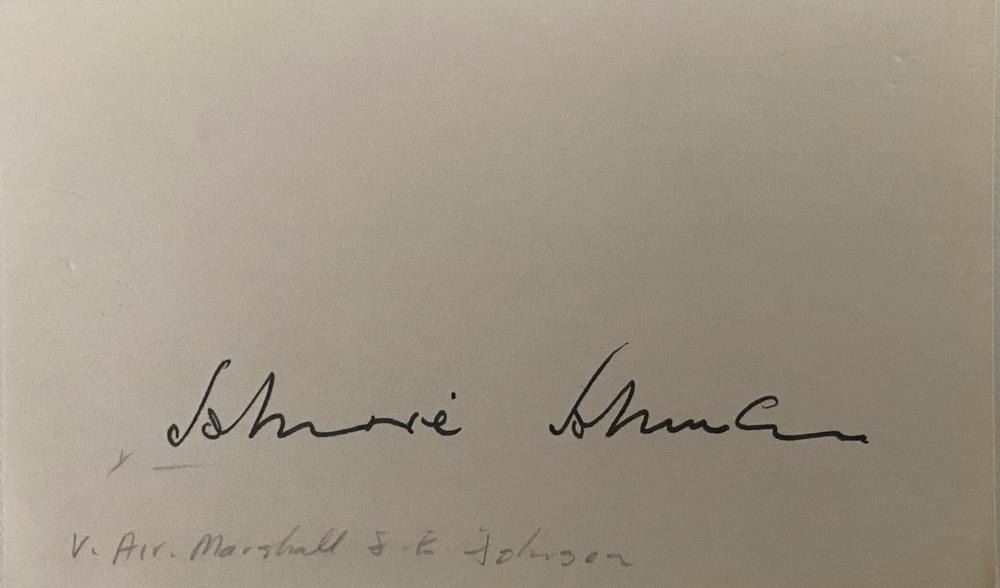 Johnnie Johnson
V. Air. Marshall J. E. Johnson